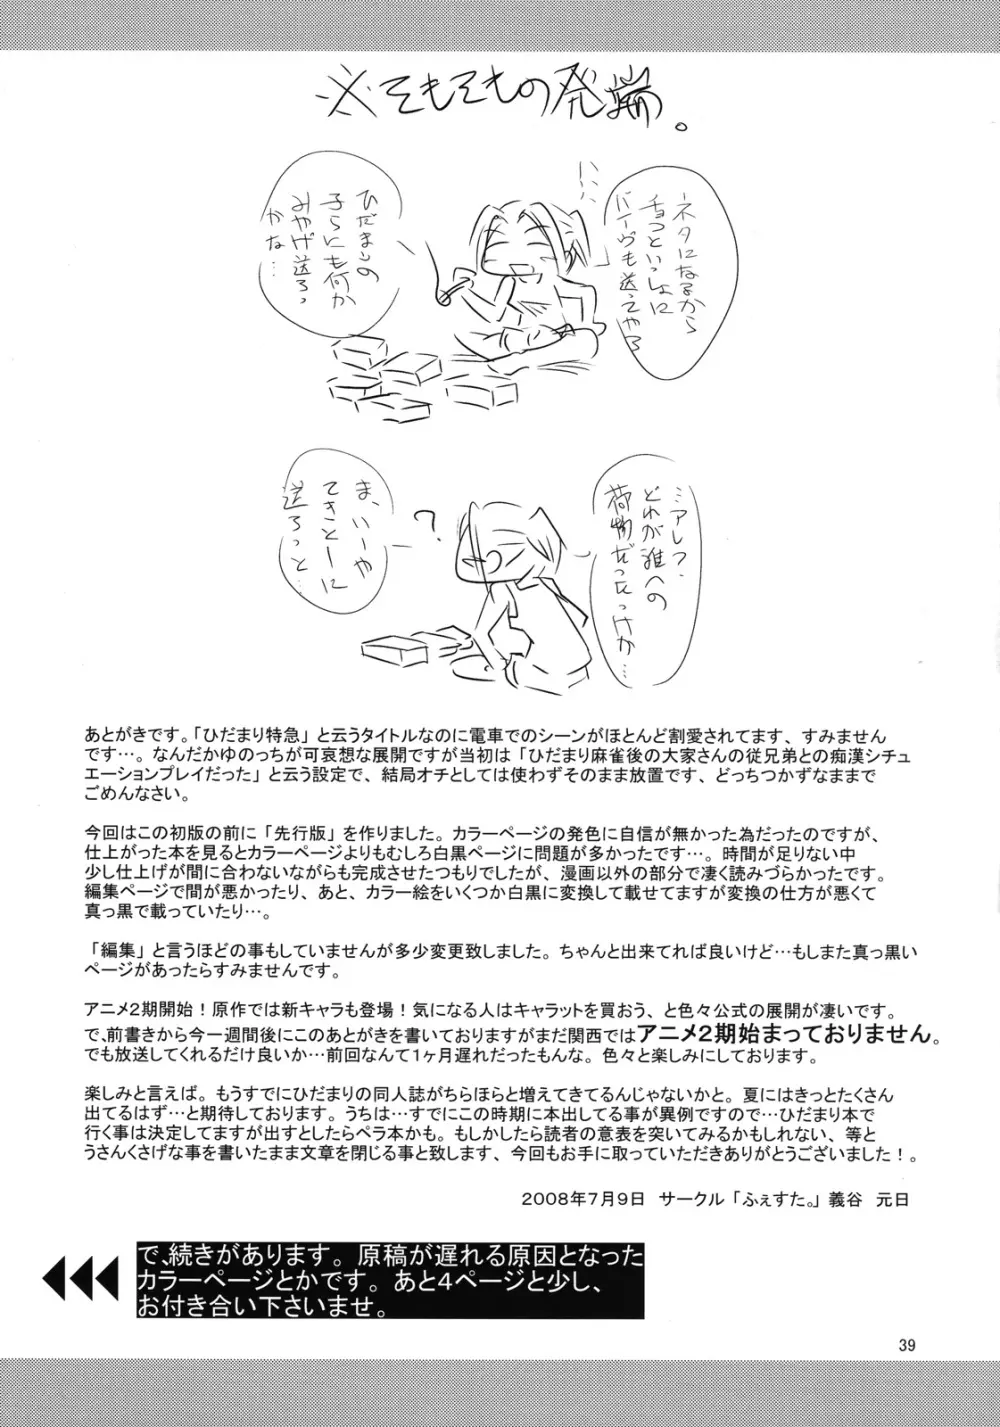 ※そもそもの発端。
ネタになるから
チョっといっしょに
バイヴも送ってやろ
ひだまりの
子らにも何か
みやげ送ろっ
かな…
ミアレ？、
どれが誰への
荷物だったっけか…
？
ま、いーや
てきとーに
送ろっと…
あとがきです。「ひだまり特急」と云うタイトルなのに電車でのシーンがほとんど割愛されてます、すみません
です…。なんだかゆのっちが可哀想な展開ですが当初は「ひだまり麻雀後の大家さんの従兄弟との痴漢シチュ
エーションプレイだった」と云う設定で、結局オチとしては使わずそのまま放置です、どっちつかずなままで
ごめんなさい。
今回はこの初版の前に「先行版」を作りました。カラーページの発色に自信が無かった為だったのですが、
仕上がった本を見るとカラーページよりもむしろ白黒ページに問題が多かったです…。時間が足りない中
少し仕上げが間に合わないながらも完成させたつもりでしたが、漫画以外の部分で凄く読みづらかったです。
編集ページで間が悪かったり、あと、カラー絵をいくつか白黒に変換して載せてますが変換の仕方が悪くて
真っ黒で載っていたり…。
「編集」と言うほどの事もしていませんが多少変更致しました。ちゃんと出来てれば良いけど…もしまた真っ黒い
ページがあったらすみませんです。
アニメ２期開始！原作では新キャラも登場！気になる人はキャラットを買おう、と色々公式の展開が凄いです。
で、前書きから今一週間後にこのあとがきを書いておりますがまだ関西ではアニメ２期始まっておりません。
でも放送してくれるだけ良いか…前回なんて１ヶ月遅れだったもんな。色々と楽しみにしております。
楽しみと言えば。もうすでにひだまりの同人誌がちらほらと増えてきてるんじゃないかと。夏にはきっとたくさん
出てるはず…と期待しております。うちは…すでにこの時期に本出してる事が異例ですので…ひだまり本で
行く事は決定してますが出すとしたらペラ本かも。もしかしたら読者の意表を突いてみるかもしれない、等と
うさんくさげな事を書いたまま文章を閉じる事と致します、今回もお手に取っていただきありがとうございました！。
２００８年７月９日　サークル「ふぇすた。」義谷　元日
で、続きがあります。原稿が遅れる原因となった
カラーページとかです。あと４ページと少し、
お付き合い下さいませ。
39